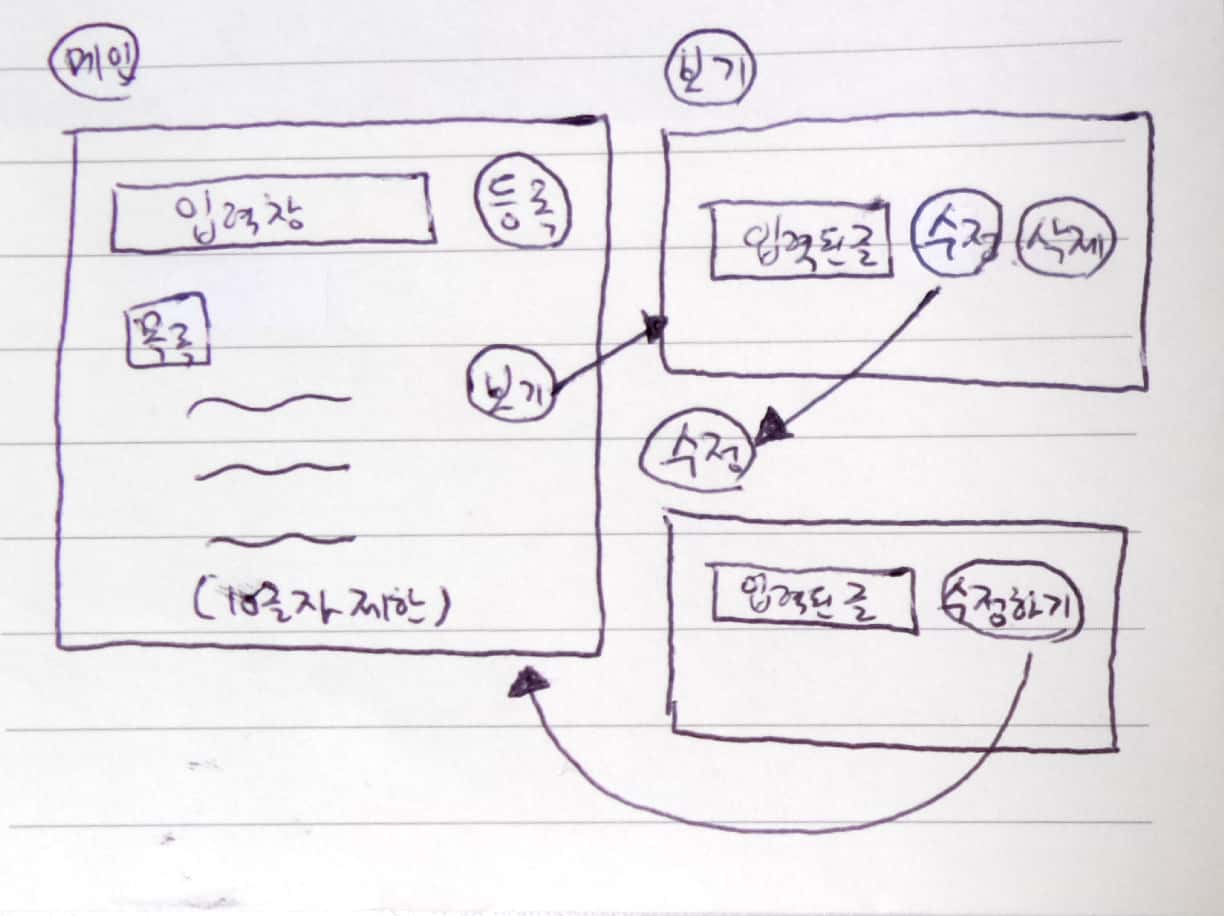 메인
입력창
등록
목록
보기
(10글자 제한)
보기
입력된글
수정
삭제
수정
입력된 글
수정하기